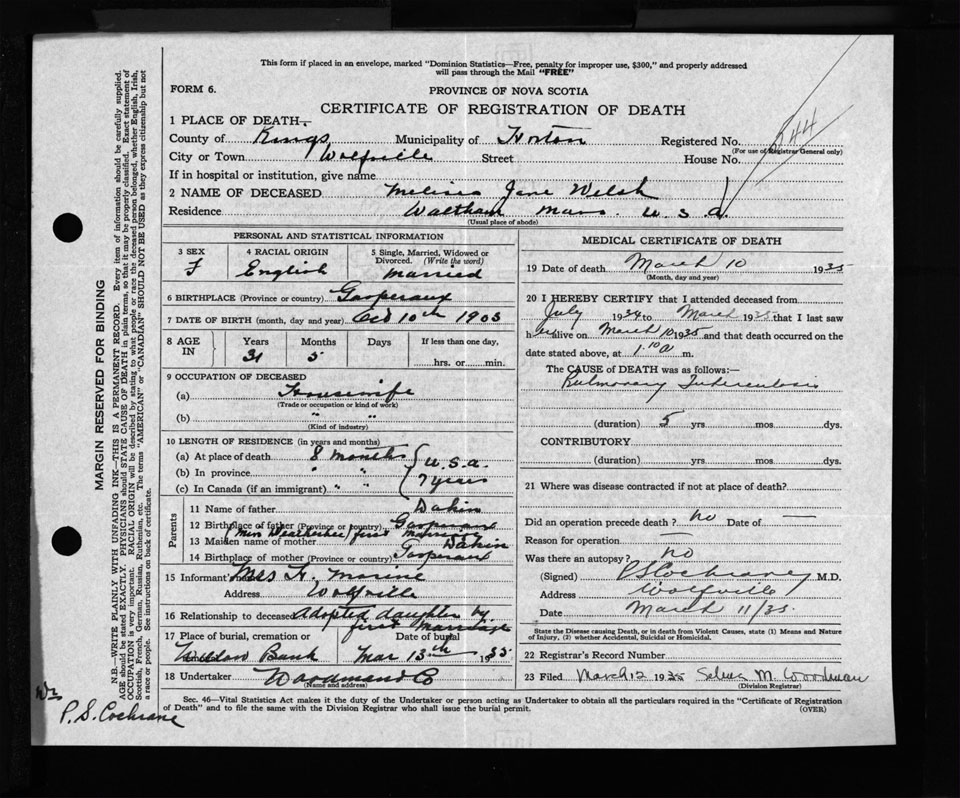 This form if placed in an envelope, marked "Dominion Statistics—Free, penalty for improper use, $300," and properly addressed
will pass through the Mail "FREE"
FORM 6.
PROVINCE OF NOVA SCOTIA
CERTIFICATE OF REGISTRATION OF DEATH
1 PLACE OF DEATH
County of Kings Municipality of Horton Registered No. 844
(For use of Registrar General only)
City or Town Wolfville Street House No.
If in hospital or institution, give name
2 NAME OF DECEASED Melissa Jane Welsh
Residence Waltham Mass. U.S.A.
(Usual place of abode)
PERSONAL AND STATISTICAL INFORMATION
3 SEX 4 RACIAL ORIGIN 5 Single, Married, Widowed or
Divorced. (Write the word)
F English Married
6 BIRTHPLACE (Province or country) Gasperaux
7 DATE OF BIRTH (month, day and year) Oct 10th 1903
8 AGE IN Years Months Days If less than one day,
31 5 hrs. or min.
9 OCCUPATION OF DECEASED
(a) Housewife
(Trade or occupation or kind of work)
(b) " "
(Kind of industry)
10 LENGTH OF RESIDENCE (in years and months)
(a) At place of death 8 months
(b) In province " " U.S.A.
(c) In Canada (if an immigrant) " " 7 years
Parents
11 Name of father Dakin
12 Birthplace of father (Province or country) Gasperaux
(Mrs Weatherbee) first
13 Maiden name of mother Dakin
14 Birthplace of mother (Province or country) Gasperaux
15 Informant Mrs H. Marine
Address Wolfville
16 Relationship to deceased adopted daughter by
first Marriage
17 Place of burial, cremation or Date of burial
Willow Bank Mar 13th 1935
18 Undertaker Woodman & Co
(Name and address)
MEDICAL CERTIFICATE OF DEATH
19 Date of death March 10 1935
(Month, day and year)
20 I HEREBY CERTIFY that I attended deceased from
July 1934 to March 1935 that I last saw
her alive on March 10 1935 and that death occurred on the
date stated above, at 1.10 a m.
The CAUSE of DEATH was as follows:—
Pulmonary Tuberculosis
(duration) 5 yrs. mos. dys.
CONTRIBUTORY
(duration) yrs. mos. dys.
21 Where was disease contracted if not at place of death?
Did an operation precede death? no Date of —
Reason for operation —
Was there an autopsy? no
(Signed) P S Cochrane M.D.
Address Wolfville
Date March 11/35.
State the Disease causing Death, or in death from Violent Causes, state (1) Means and Nature
of Injury, (2) whether Accidental, Suicidal or Homicidal.
22 Registrar's Record Number
23 Filed March 12 1935 M. Woodman
(Division Registrar)
Sec. 46—Vital Statistics Act makes it the duty of the Undertaker or person acting as Undertaker to obtain all the particulars required in the "Certificate of Registration
of Death" and to file the same with the Division Registrar who shall issue the burial permit.
(OVER)
MARGIN RESERVED FOR BINDING
N.B.—WRITE PLAINLY WITH UNFADING INK—THIS IS A PERMANENT RECORD. Every item of information should be carefully supplied.
AGE should be stated EXACTLY. PHYSICIANS should STATE CAUSE OF DEATH in plain terms, so that it may be properly classified. Exact statement of
OCCUPATION is very important. RACIAL ORIGIN will be described by stating to what people or race the deceased person belonged, whether English, Irish,
Scottish, French, German, Russian, Ruthenian, etc. The terms "AMERICAN" or "CANADIAN" SHOULD NOT BE USED as they express citizenship but not
a race or people. See instructions on back of certificate.
Dr
P. S. Cochrane